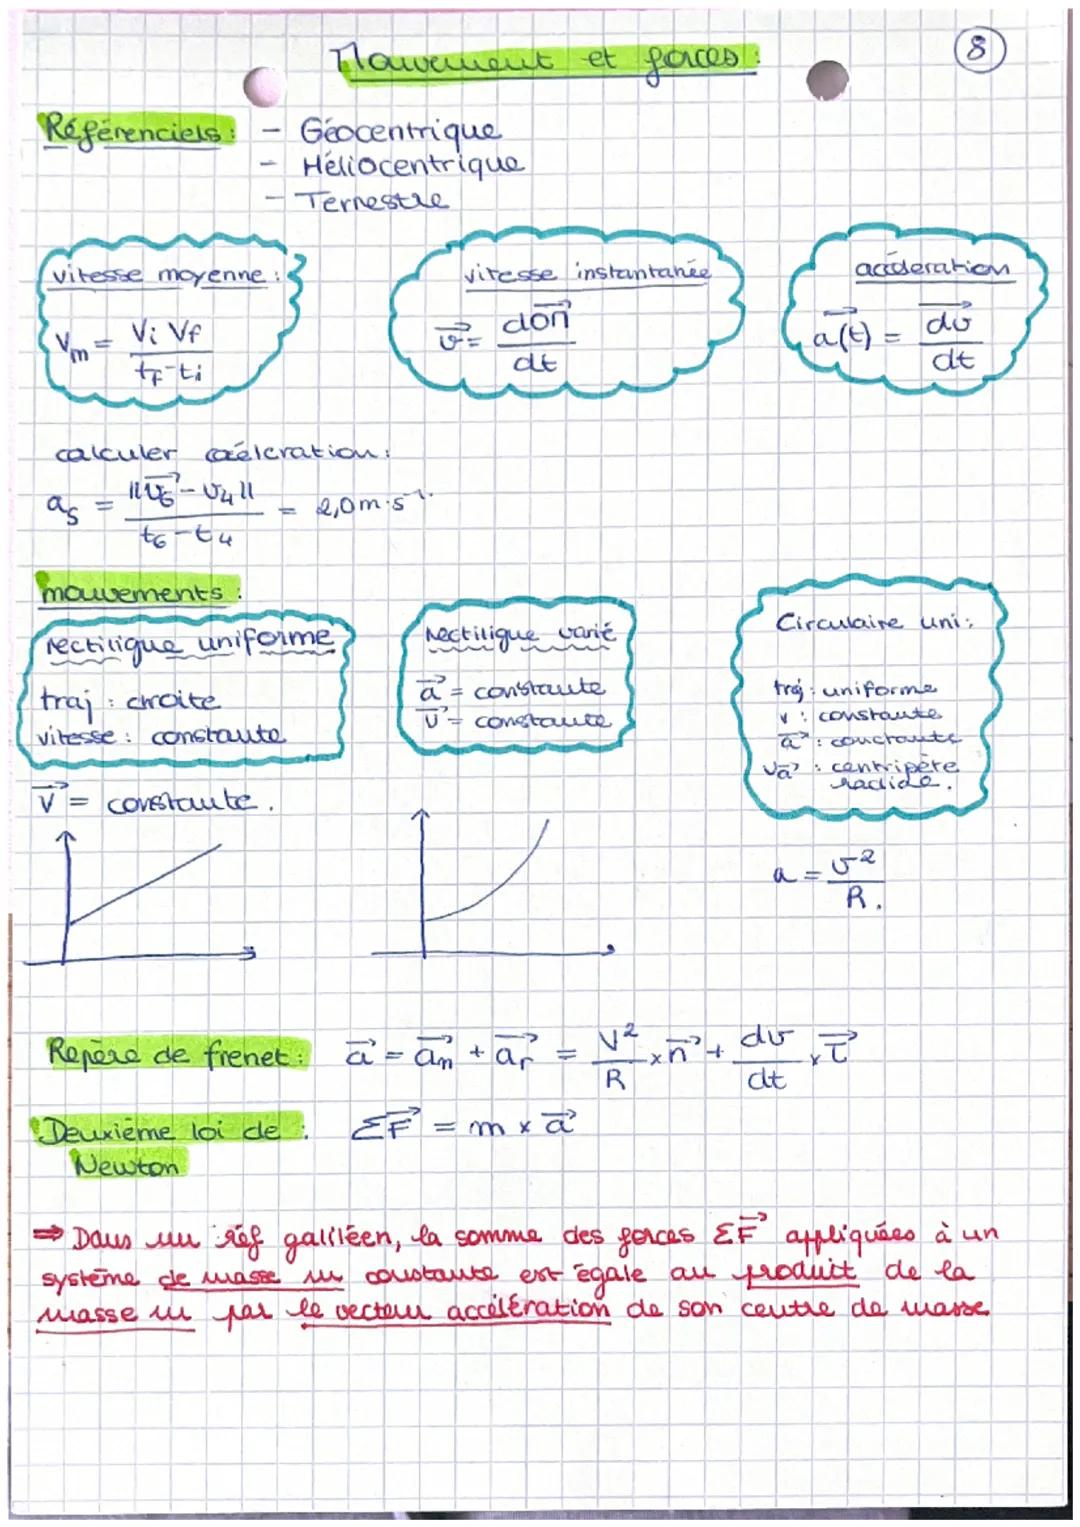 Mouvement et forces :
8
Référenciels : - Géocentrique
- Héliocentrique
- Terrestre
vitesse moyenne :
Vm = Vi Vf / tf-ti
vitesse instantanée
v⃗ = dOM⃗ / dt
accéleration
a⃗(t) = dv⃗ / dt
calculer accélération :
a5 = ||v6⃗ - v4|| / t6-t4 = 2,0 m.s⁻¹.
mouvements :
rectilique uniforme
traj : droite
vitesse : constante
V⃗ = constante.
rectilique varié
a⃗ = constante
v⃗ = constante
Circulaire uni :
traj : uniforme
v : constante
a⃗ : constante
va⃗ : centripète
radiale.
a = v² / R.
Repère de frenet : a⃗ = an⃗ + ar⃗ = V²/R × n⃗ + dv/dt × τ⃗
Deuxième loi de : ΣF⃗ = m × a⃗
Newton
⇒ Dans un réf galiléen, la somme des forces ΣF⃗ appliquées à un
système de masse m constante est égale au produit de la
masse m par le vecteur accélération de son centre de masse